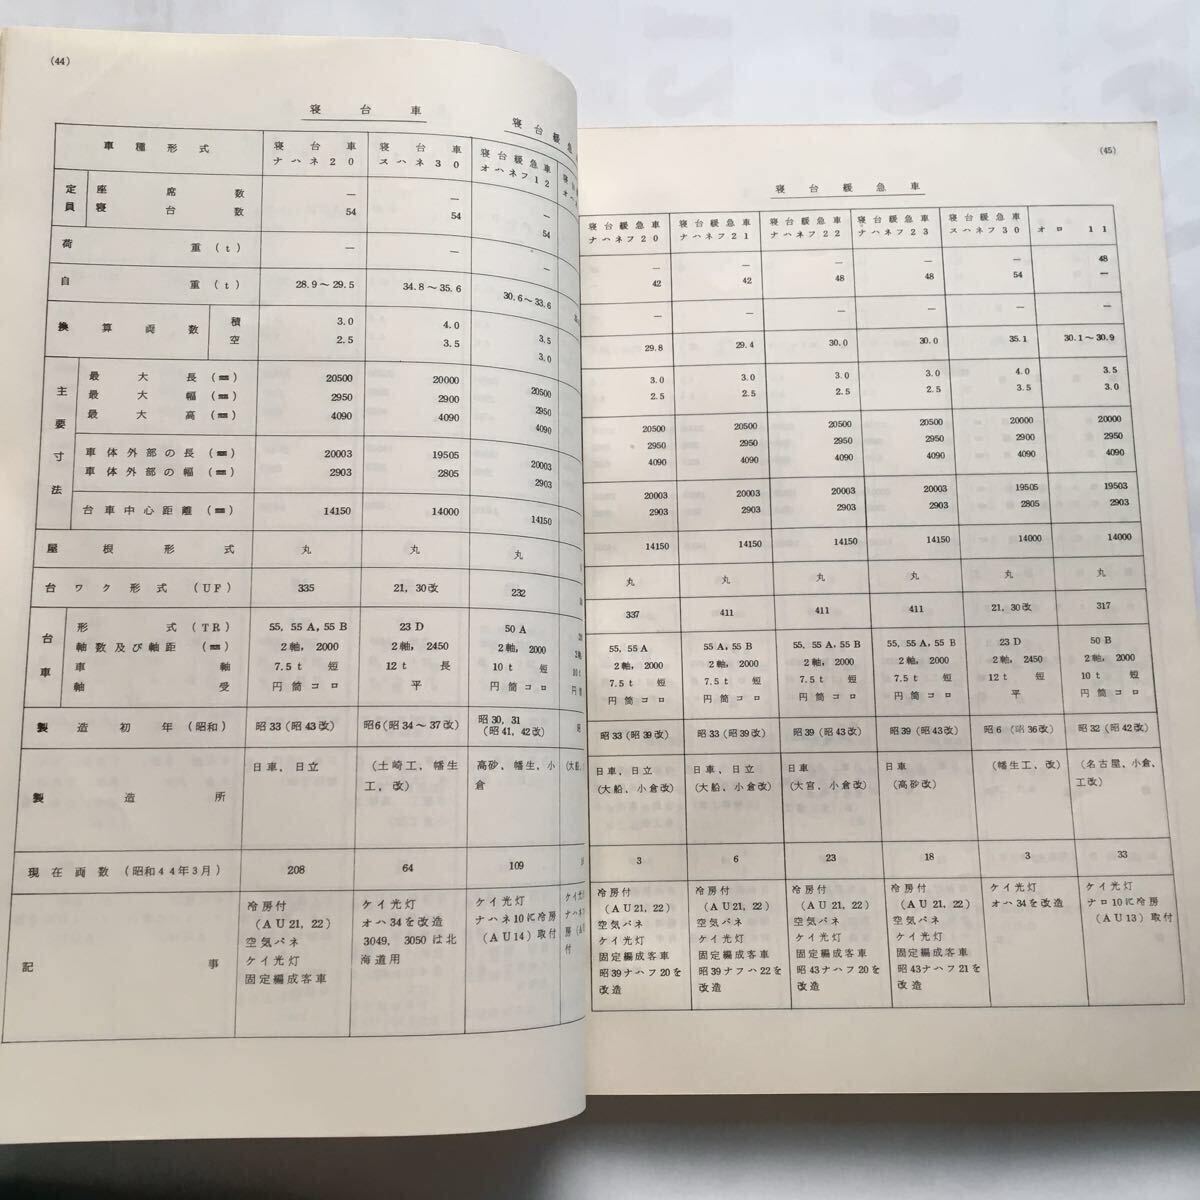 (44)
寝台車
寝台緩急
車種形式 寝台車 ナハネ20 寝台車 スハネ30 寝台緩急車 オハネフ12
定員 座席数 — — —
寝台数 54 54 54
荷重(t) — — —
自重(t) 28.9〜29.5 34.8〜35.6 30.6〜33.6
換算両数 積 3.0 4.0 3.5
空 2.5 3.5 3.0
主要寸法 最大長(㎜) 20500 20000 20500
最大幅(㎜) 2950 2900 2950
最大高(㎜) 4090 4090 4090
車体外部の長(㎜) 20003 19505 20003
車体外部の幅(㎜) 2903 2805 2903
台車中心距離(㎜) 14150 14000 14150
屋根形式 丸 丸 丸
台ワク形式(UF) 335 21, 30改 232
台車 形式(TR) 55, 55A, 55B 23D 50A
軸数及び軸距(㎜) 2軸, 2000 2軸, 2450 2軸, 2000
車軸 7.5t 短 12t 長 10t 短
軸受 円筒コロ 平 円筒コロ
製造初年(昭和) 昭33(昭43改) 昭6(昭34〜37改) 昭30, 31(昭41, 42改)
製造所 日車、日立 (土崎工、幡生工、改) 高砂、幡生、小倉
現在両数(昭和44年3月) 208 64 109
記事
冷房付
(AU21, 22)
空気バネ
ケイ光灯
固定編成客車
ケイ光灯
オハ34を改造
3049, 3050は北
海道用
ケイ光灯
ナハネ10に冷房
(AU14)取付
(45)
寝台緩急車
寝台緩急車 寝台緩急車 寝台緩急車 寝台緩急車 寝台緩急車
ナハネフ20 ナハネフ21 ナハネフ22 ナハネフ23 スハネフ30 オロ 11
— — — — — 48
42 42 48 48 54 —
— — — — — —
29.8 29.4 30.0 30.0 35.1 30.1〜30.9
3.0 3.0 3.0 3.0 4.0 3.5
2.5 2.5 2.5 2.5 3.5 3.0
20500 20500 20500 20500 20000 20000
2950 2950 2950 2950 2900 2950
4090 4090 4090 4090 4090 4090
20003 20003 20003 20003 19505 19503
2903 2903 2903 2903 2805 2903
14150 14150 14150 14150 14000 14000
丸 丸 丸 丸 丸 丸
337 411 411 411 21, 30改 317
55, 55A 55A, 55B 55A, 55B 55, 55A, 55B 23D 50B
2軸, 2000 2軸, 2000 2軸, 2000 2軸, 2000 2軸, 2450 2軸, 2000
7.5t 短 7.5t 短 7.5t 短 7.5t 短 12t 短 10t 短
円筒コロ 円筒コロ 円筒コロ 円筒コロ 平 円筒コロ
昭33(昭39改) 昭33(昭39改) 昭39(昭43改) 昭39(昭43改) 昭6(昭36改) 昭32(昭42改)
日車、日立 日車、日立 日車 日車 (幡生工、改) (名古屋、小倉、
(大船、小倉改) (大船、小倉改) (大宮、小倉改) (高砂改) 工改)
3 6 23 18 3 33
冷房付
(AU21, 22)
空気バネ
ケイ光灯
固定編成客車
昭39ナハフ20を
改造
冷房付
(AU21, 22)
空気バネ
ケイ光灯
固定編成客車
昭39ナフハ22を
改造
冷房付
(AU21, 22)
空気バネ
ケイ光灯
固定編成客車
昭43ナハフ20を
改造
冷房付
(AU21, 22)
空気バネ
ケイ光灯
固定編成客車
昭43ナハフ21を
改造
ケイ光灯
オハ34を改造
ケイ光灯
ナロ10に冷房
(AU13)取付